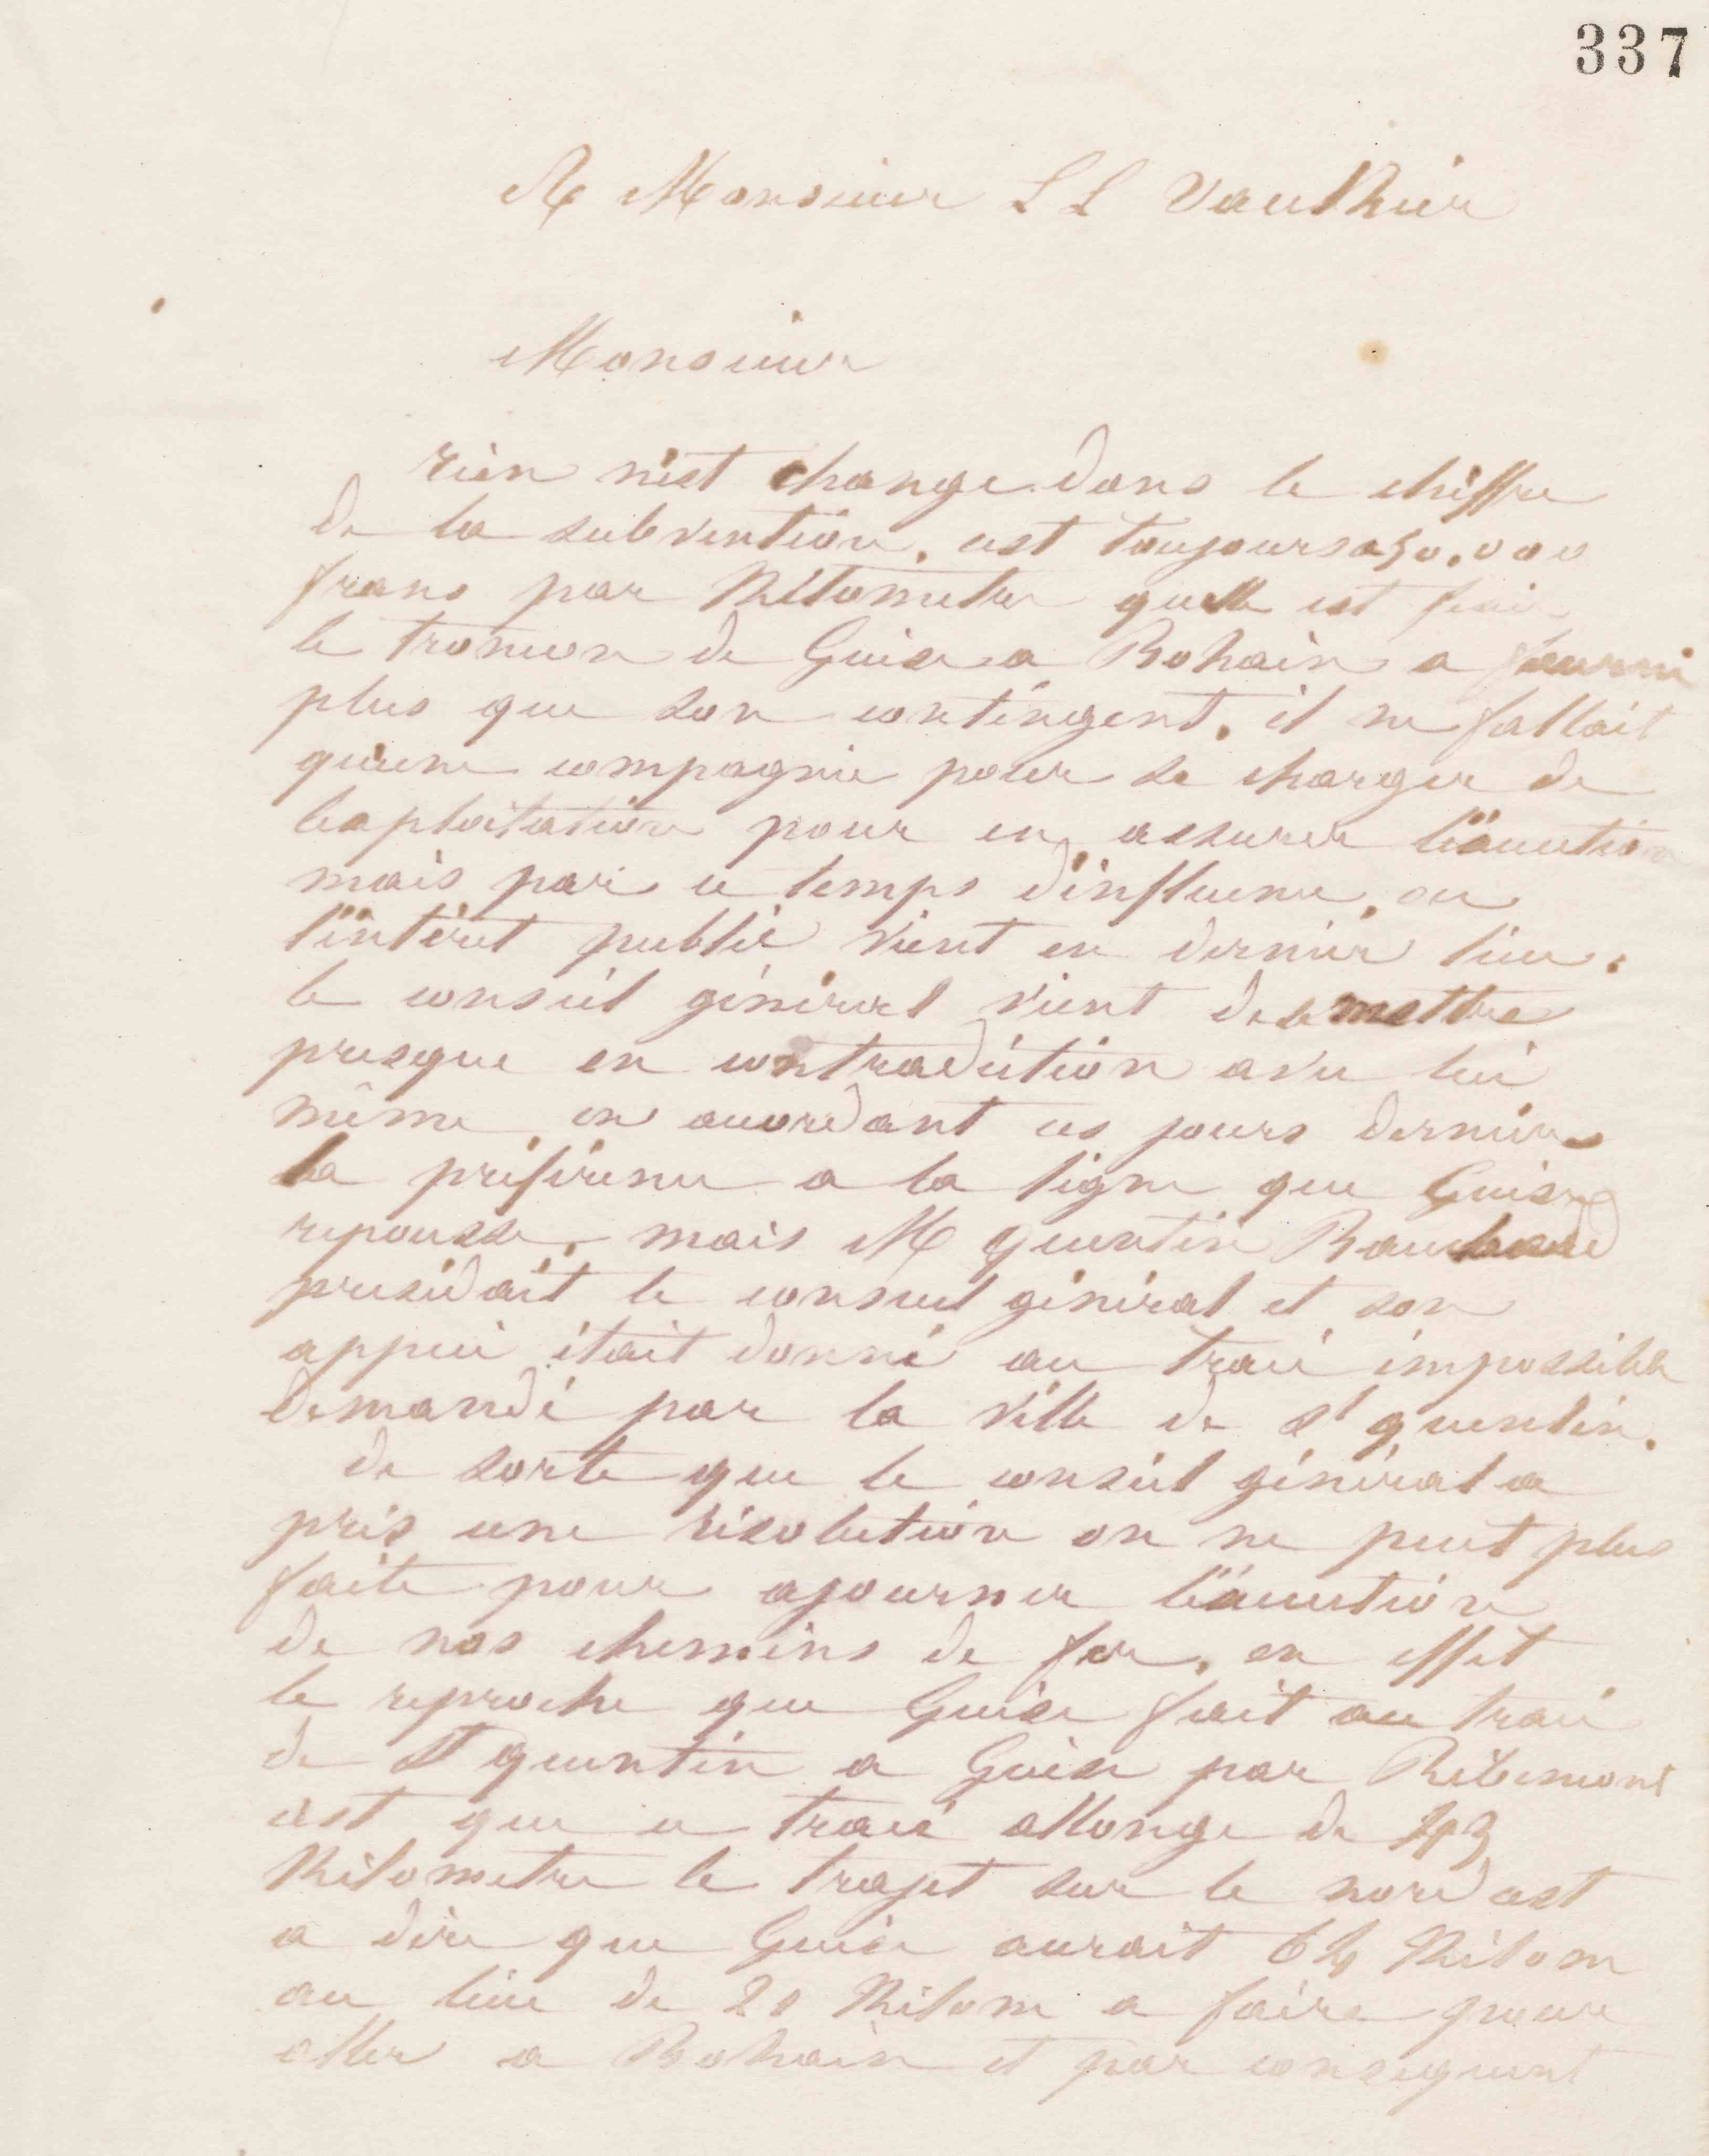 337
A Monsieur LL Vauthier
Monsieur
rien n'est change dans le chiffre
de la subvention. cest toujours a 50.000
franc par Kilometre quelle est fixée
le troncon de Guise a Bohain a fourni
plus que son contingent. il ne fallait
qu'une compagnie pour se charger de
lexploitation pour en assurer l'éxecution
mais par ce temps d'influence, ou
l'intéret public vient en dernier lieu.
le conseil général vient de se mettre
presque en contradiction avec lui
même en accordant ces jours derniers
la préférence a la ligne que Guise
repousse. mais M quentin Bauchard
presidait le conseil général et son
appui était donné au tracé impossible
demandé par la ville de St quentin.
de sorte que le conseil général a
pris une résolution on ne peut plus
faite pour ajourner l'éxecution
de nos chemins de fer. en effet
le reproche que Guise fait au tracé
de St quentin a Guise par Ribemont
cest que ce tracé allonge de 43
Kilometre le trajet sur le nord cest
a dire que Guise aurait 64 Kilom
au lieu de 20 Kilom a faire pour
aller a Bohain et par consequent